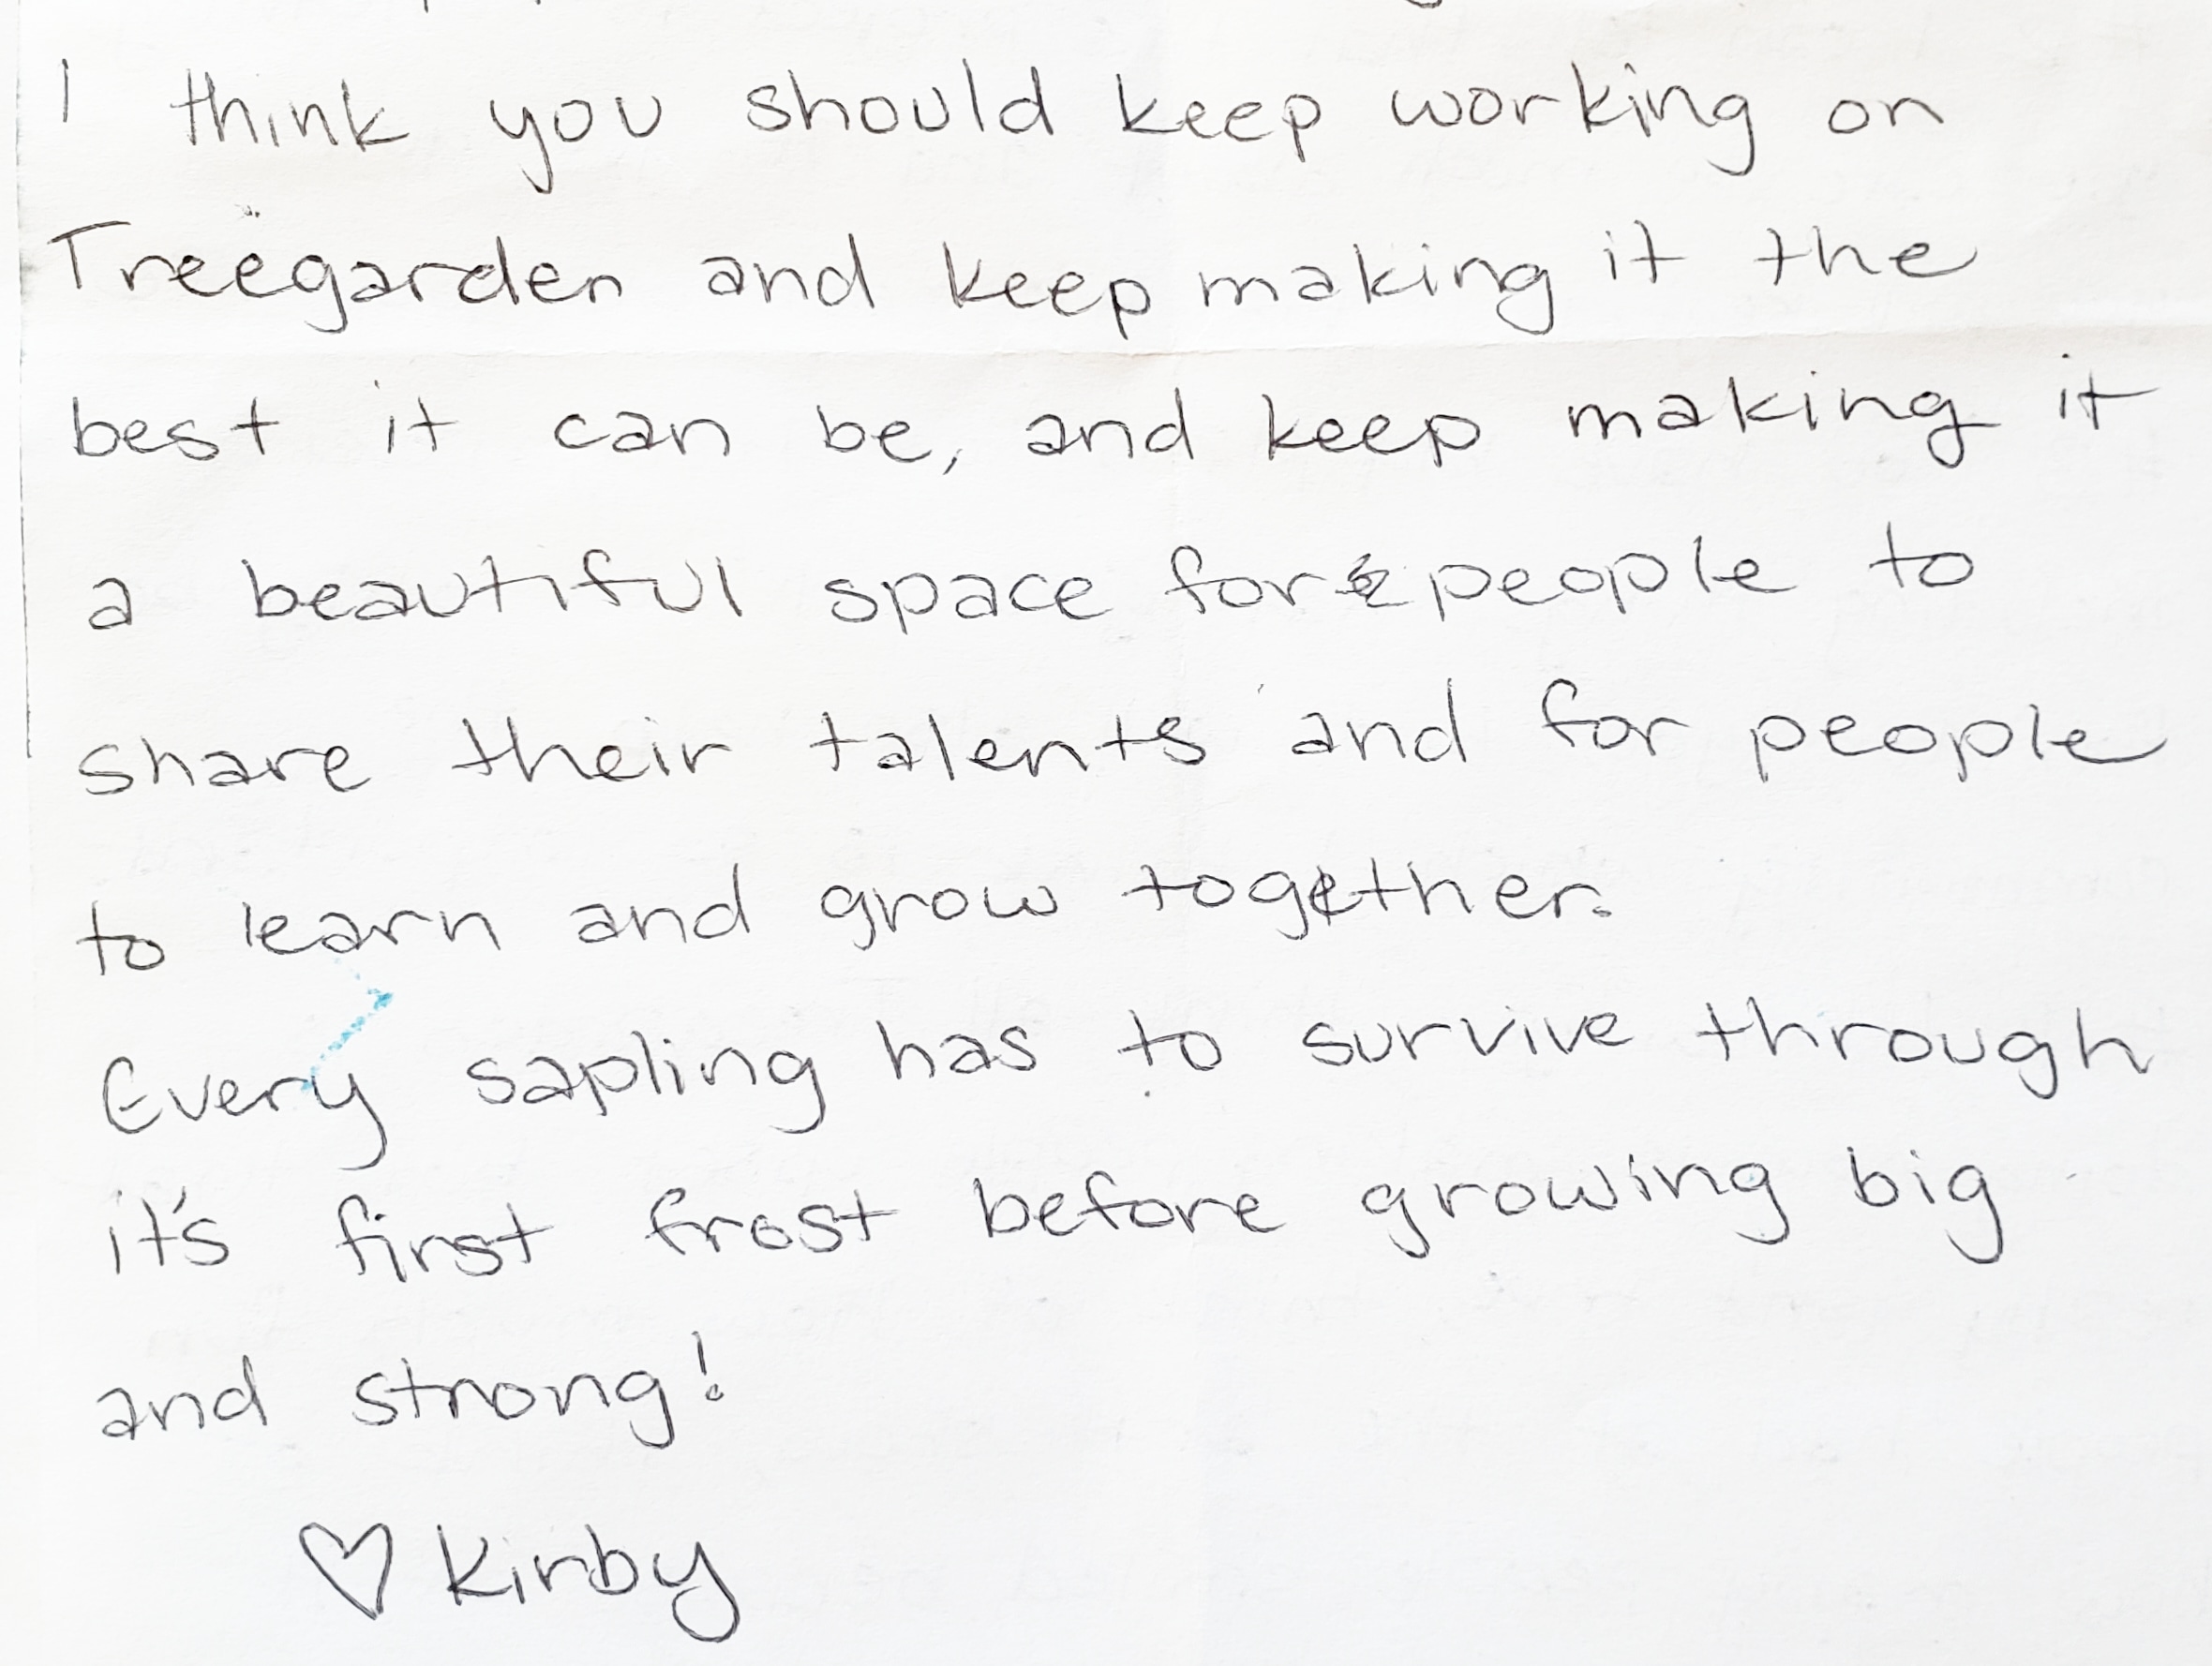 I think you should keep working on
Treegarden and keep making it the
best it can be, and keep making it
a beautiful space for people to
share their talents and for people
to learn and grow together.
Every sapling has to survive through
it's first frost before growing big
and strong!
♡ Kirby